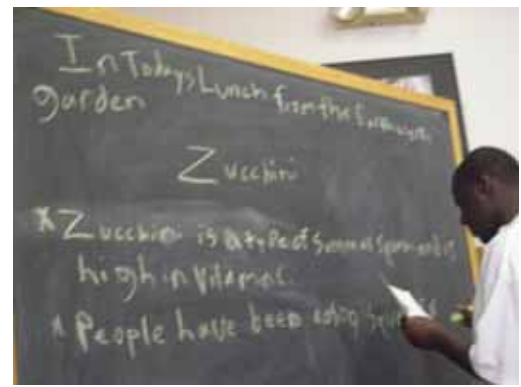 In Todays Lunch from the
garden
Zucchini
* Zucchini is a type of Summer
high in Vitamins.
* People have been eating